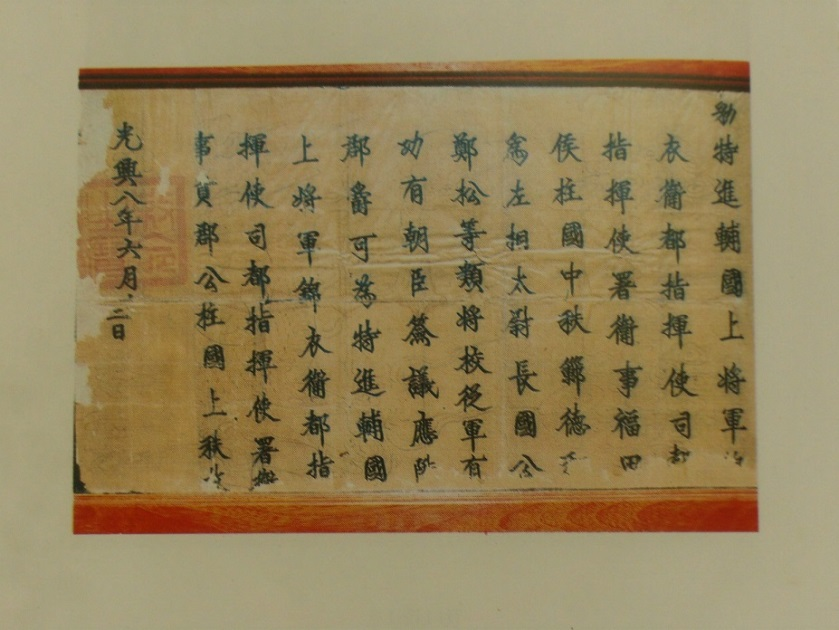 勅特進輔國上將軍
衣衛都指揮使司都
指揮使署衛事福田
侯柱國中秩鄭德
為左相太尉長國公
鄭松等類將校從軍有
功有朝臣僉議應陞
郡爵可為特進輔國
上將軍錦衣衛都指
揮使司都指揮使署衛
事貢郡公柱國上秩
光興八年六月二日